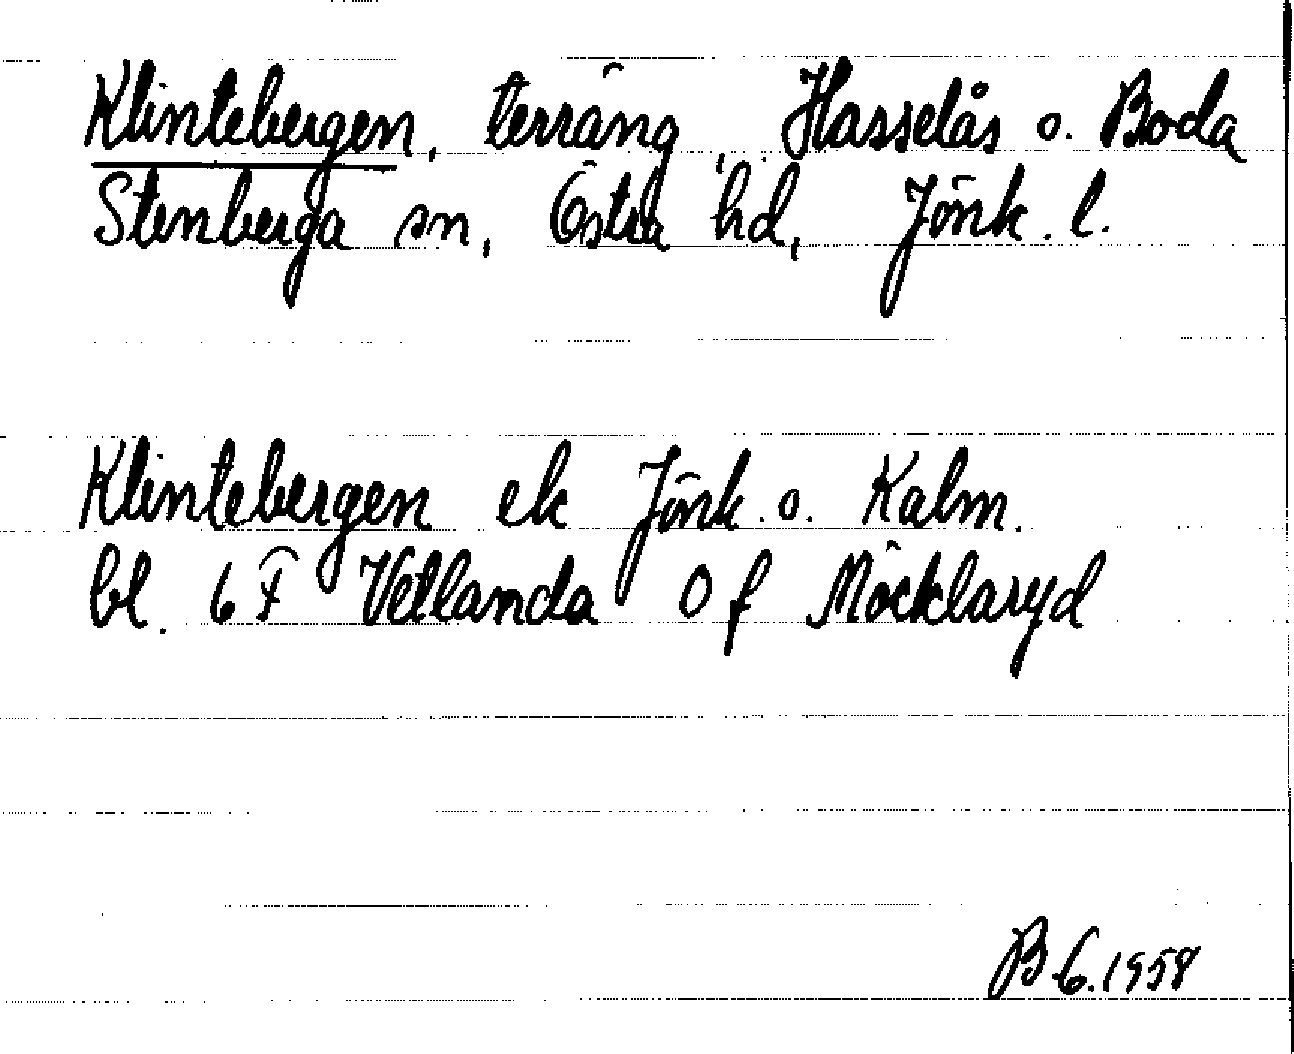 Klintebergen, terräng, Hasselås o. Boda
Stenberga sn, Östra hd, Jönk. l.
Klintebergen ek Jönk. o. Kalm.
bl. 6 F Vetlanda 0 f Möcklaryd
B 6.1958